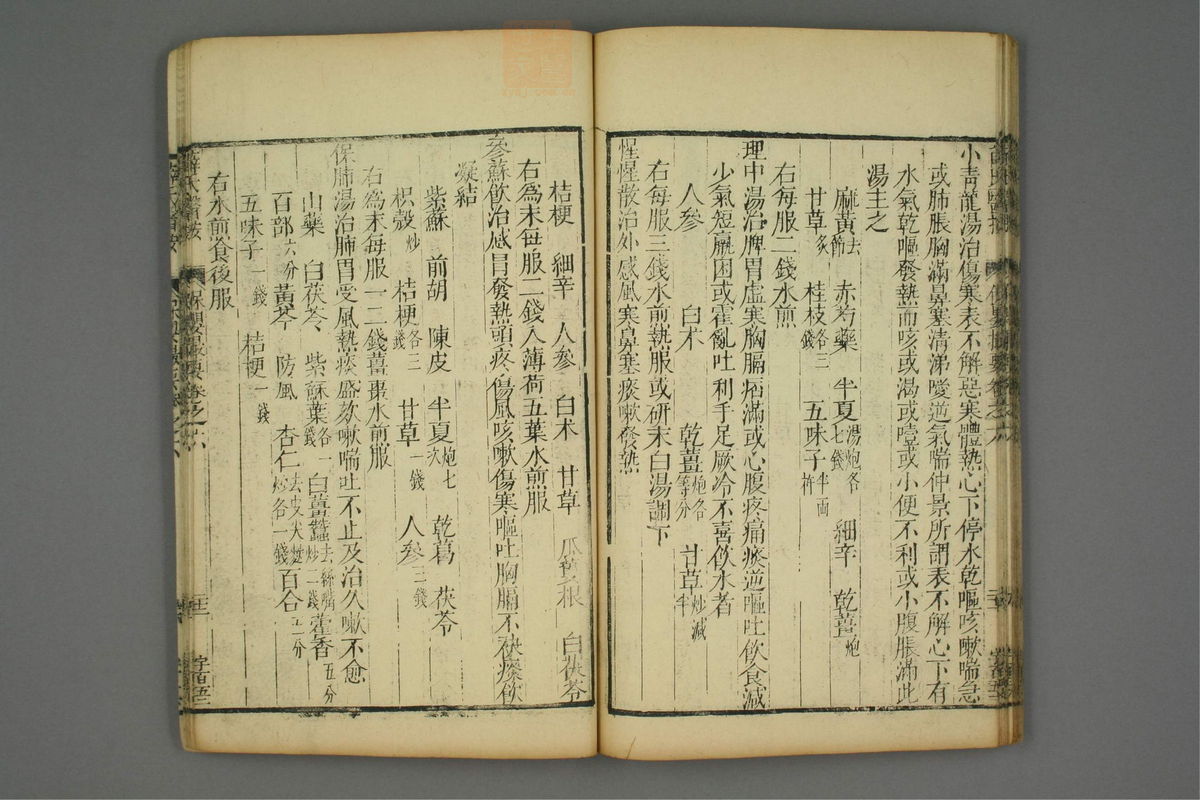 小青龍湯治傷寒表不解惡寒體熱心下停水乾嘔咳嗽喘急
或肺脹胸滿鼻塞清涕噯逆氣喘仲景所謂表不解心下有
水氣乾嘔發熱而咳或渴或噎或小便不利或小腹脹滿此
湯主之
麻黃去節 赤芍藥 半夏湯炮各七錢 細辛 乾薑炮
甘草炙 桂枝各三錢 五味子半兩
右每服二錢水煎
理中湯治脾胃虛寒胸膈痞滿或心腹疼痛痰逆嘔吐飲食減
少氣短羸困或霍亂吐利手足厥冷不喜飲水者
人參 白朮 乾薑炮各等分 甘草炒減半
右每服三錢水煎熱服或研末白湯調下
惺惺散治外感風寒鼻塞痰嗽發熱
桔梗 細辛 人參 白朮 甘草 瓜蔞根 白茯苓
右為末每服二錢入薄荷五葉水煎服
參蘇飲治感冒發熱頭疼傷風咳嗽傷寒嘔吐胸膈不快痰飲
凝結
紫蘇 前胡 陳皮 半夏炮七次 乾葛 茯苓
枳殼炒 桔梗各三錢 甘草一錢 人參二錢
右為末每服一二錢薑棗水煎服
保肺湯治肺胃受風熱痰盛欬嗽喘吐不止及治久嗽不愈
山藥 白茯苓 紫蘇葉各一錢 白薑蠶去絲嘴炒一錢 藿香五分
百部六分 黃芩 防風 杏仁去皮尖麩炒各一錢 百合五分
五味子一錢 桔梗一錢
右水煎食後服
薛氏醫按 保嬰撮要卷之六